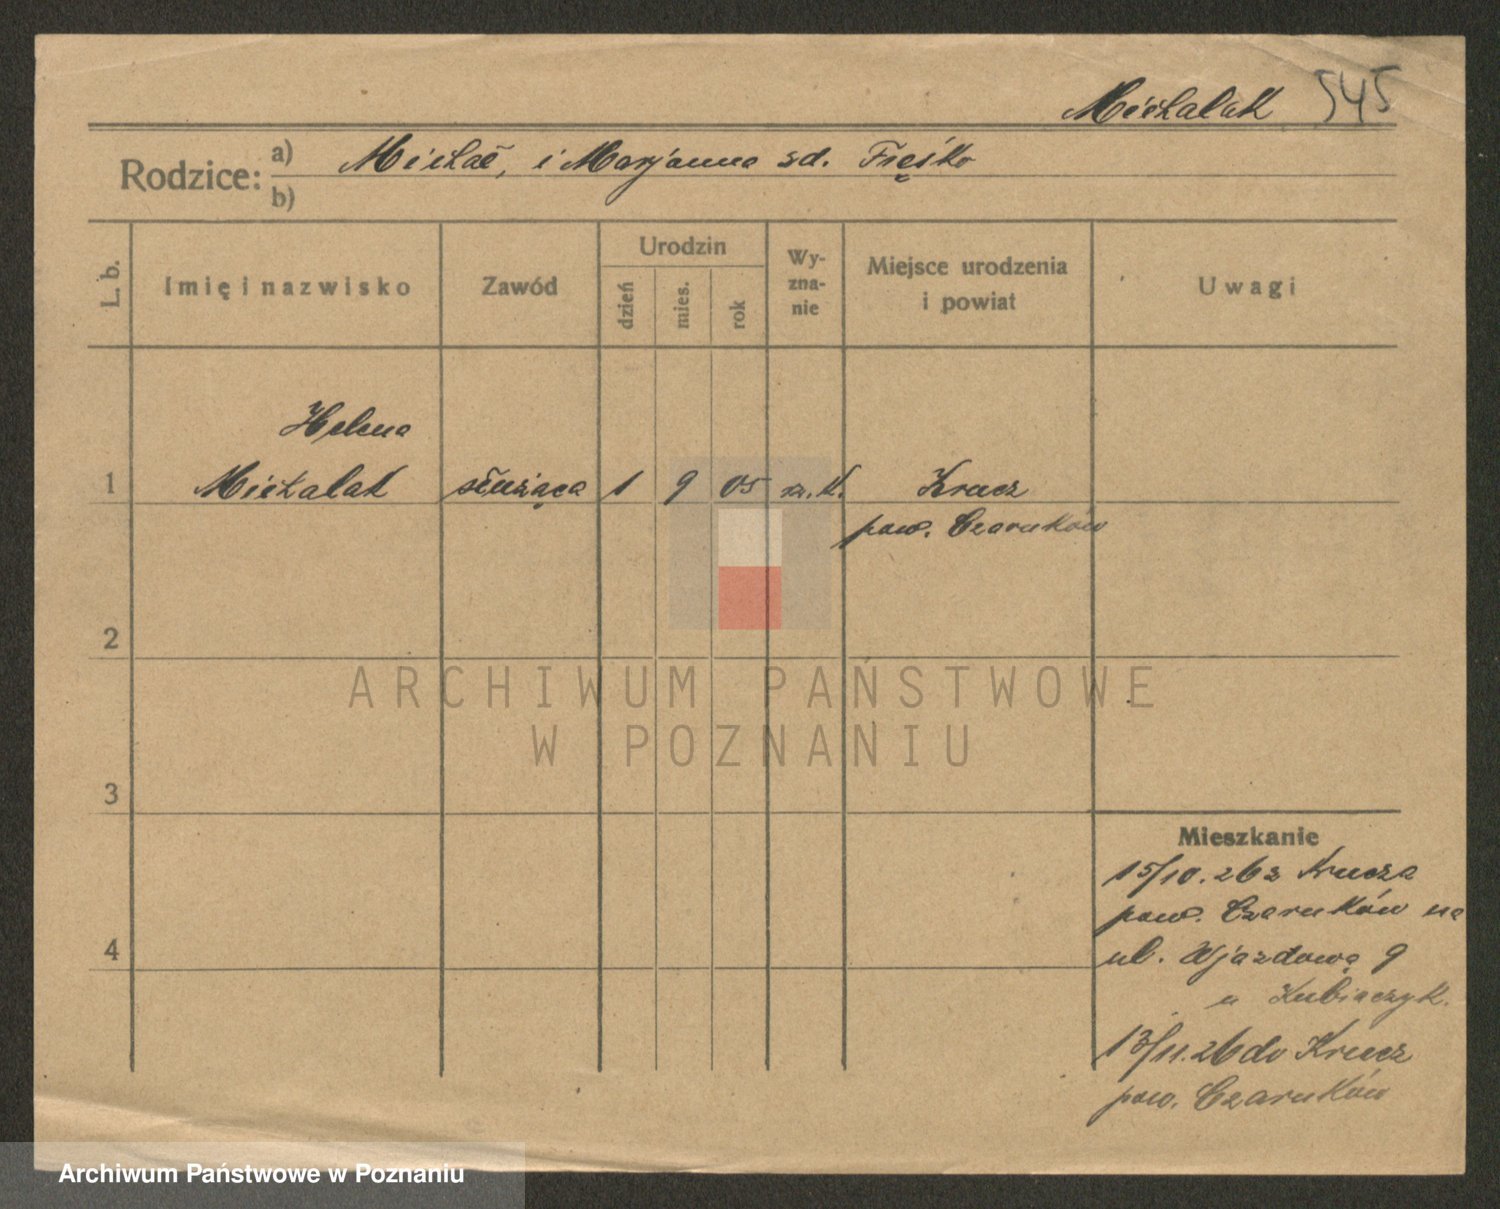 Michalak 545
Rodzice: a) Michał, i Marjanna zd.
b)
L. b.
Imię i nazwisko
Zawód
Urodzin
dzień
mies.
rok
Wy-
zna-
nie
Miejsce urodzenia
i powiat
Uwagi
Helena
1 Michalak służąca 1 9 05 rz. k. Krucz
pow. Czarnków
2
3
4
ARCHIWUM PAŃSTWOWE
W POZNANIU
Mieszkanie
15/10. 26 z Krucza
pow. Czarnków na
ul. Wjazdową 9
u Kubiaczyk.
13/11. 26 do Krucz
pow. Czarnków
Archiwum Państwowe w Poznaniu